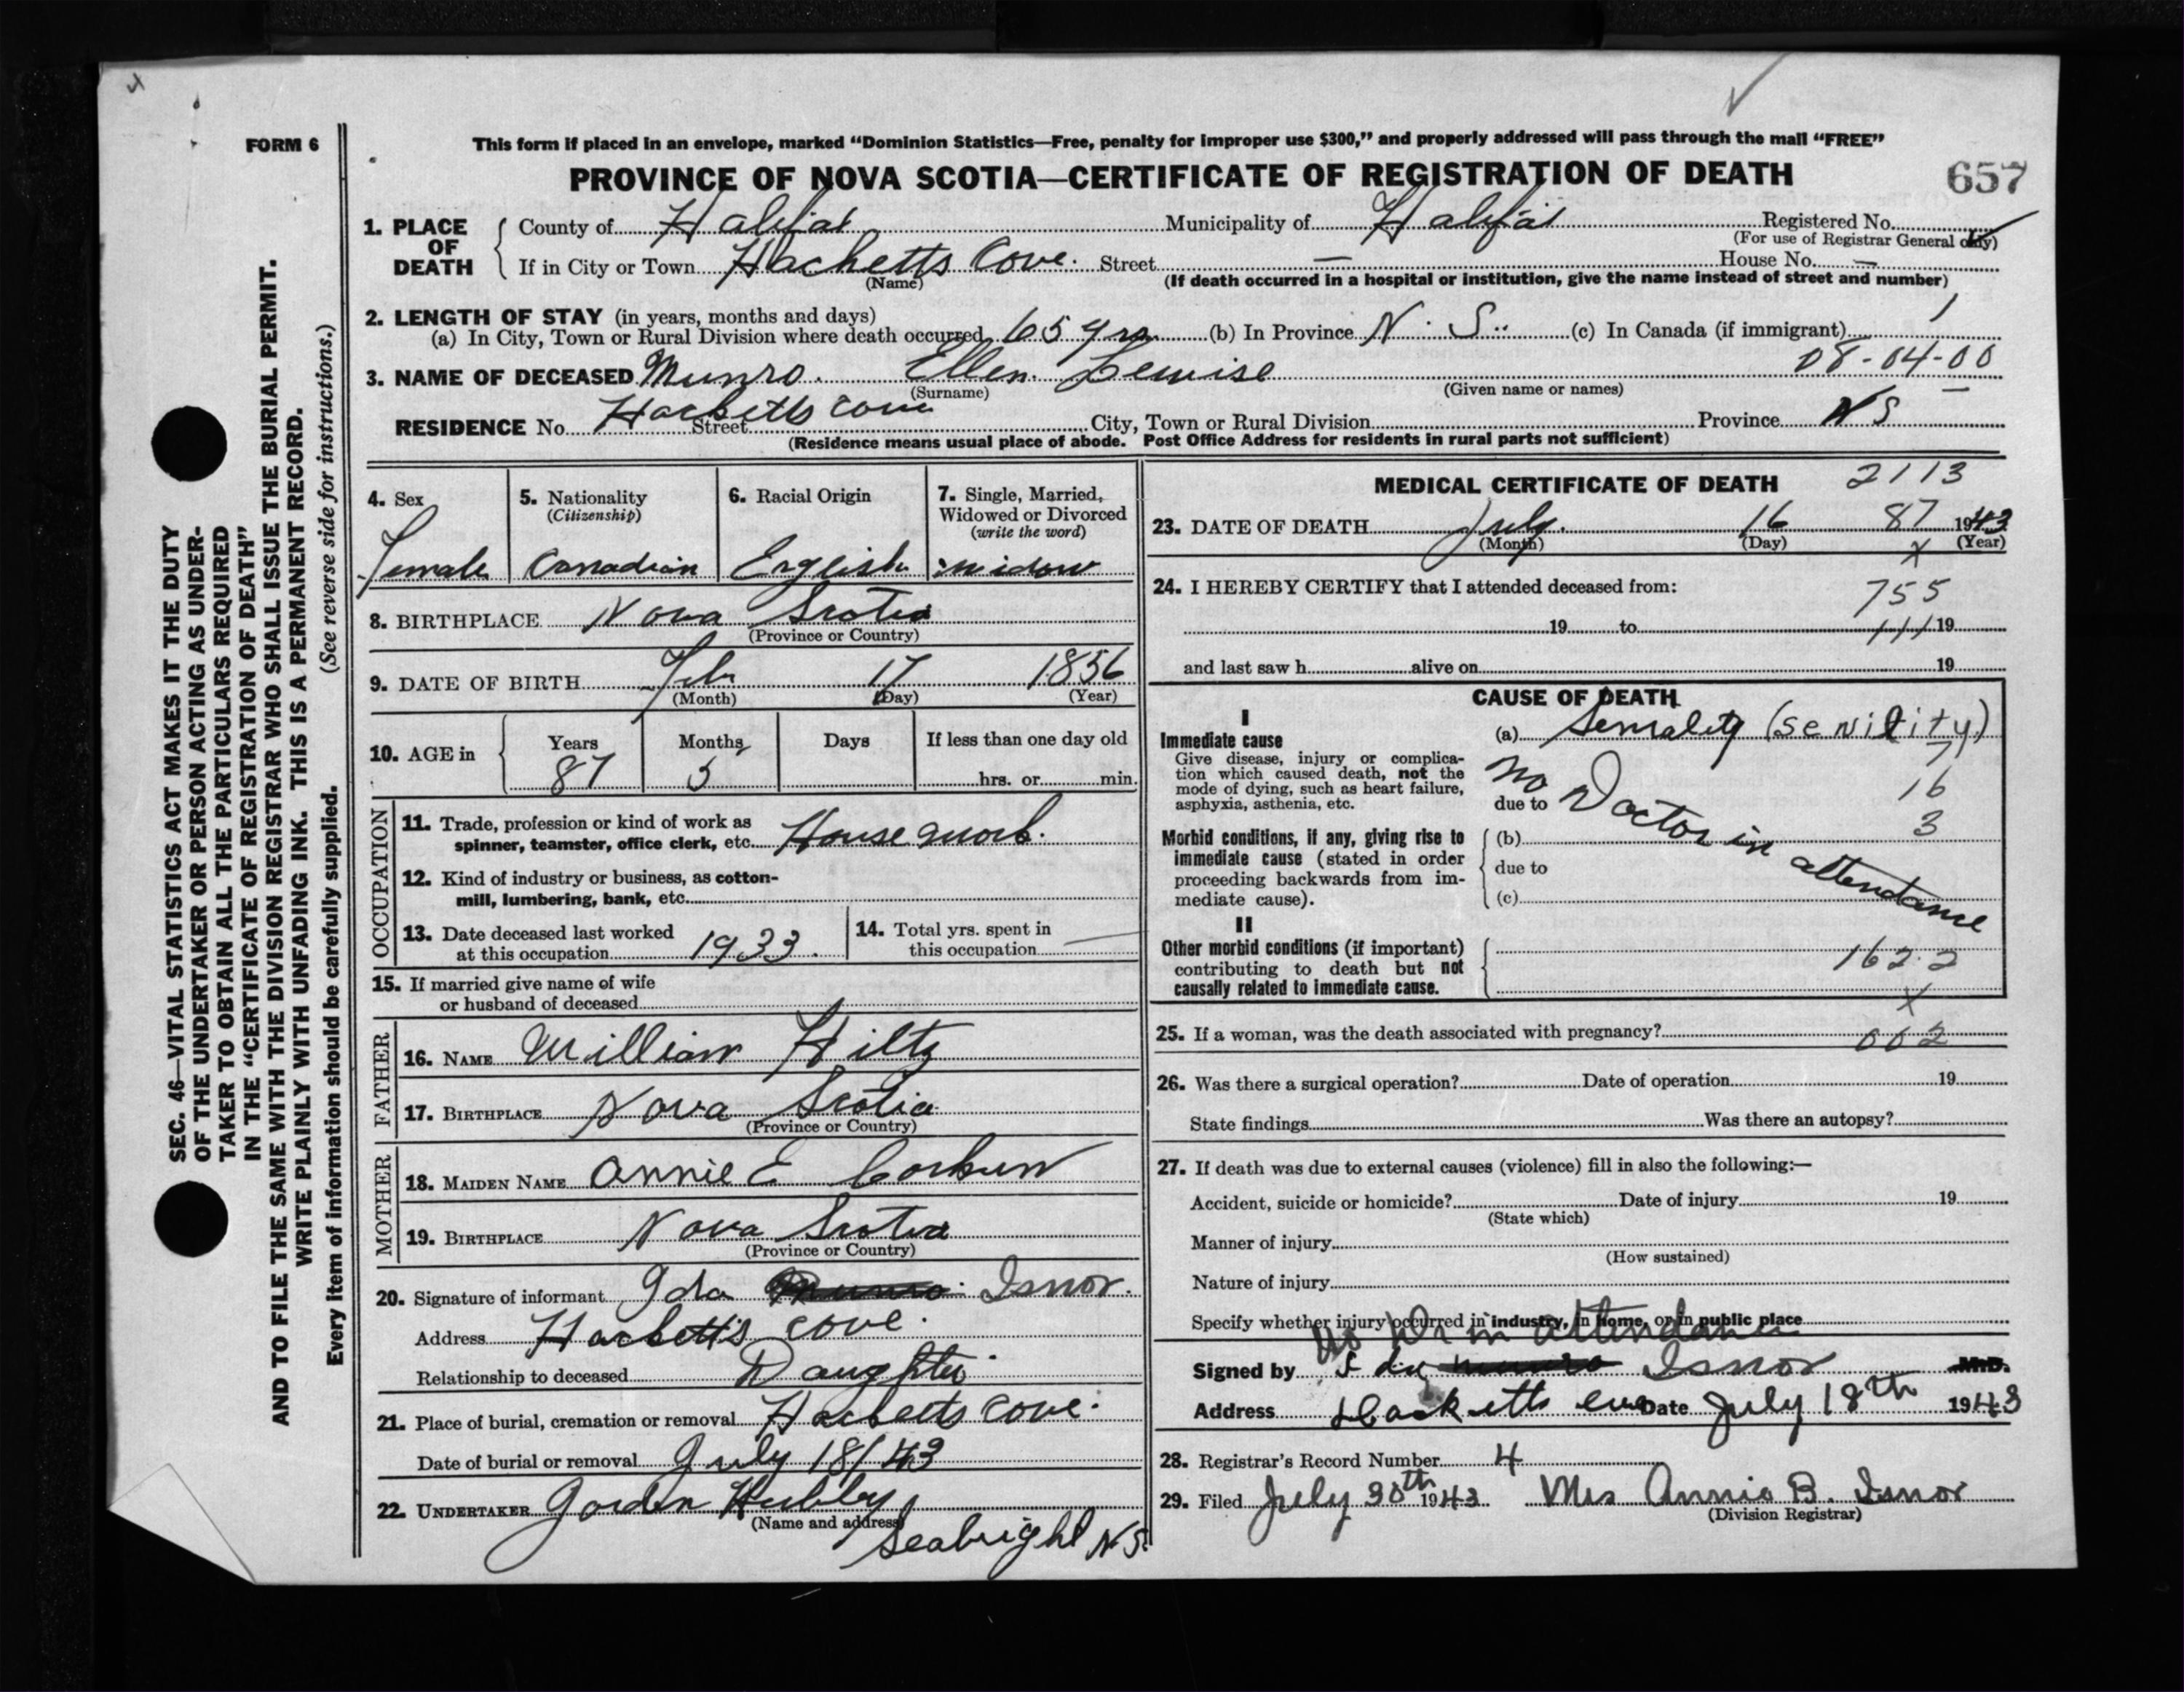 FORM 6
This form if placed in an envelope, marked “Dominion Statistics—Free, penalty for improper use $300,” and properly addressed will pass through the mail “FREE”
PROVINCE OF NOVA SCOTIA—CERTIFICATE OF REGISTRATION OF DEATH
657
1. PLACE OF DEATH
County of Halifax Municipality of Halifax Registered No.
(For use of Registrar General only)
If in City or Town Hacketts Cove. Street — House No. —
(Name) (If death occurred in a hospital or institution, give the name instead of street and number)
2. LENGTH OF STAY (in years, months and days)
(a) In City, Town or Rural Division where death occurred 65 yrs (b) In Province N. S. (c) In Canada (if immigrant) 1
3. NAME OF DECEASED Munro. Ellen Lewise 08-04-00
(Surname) (Given name or names)
RESIDENCE No. Hacketts cove Street City, Town or Rural Division Province N S
(Residence means usual place of abode. Post Office Address for residents in rural parts not sufficient)
4. Sex
Female
5. Nationality
(Citizenship)
Canadian
6. Racial Origin
English
7. Single, Married, Widowed or Divorced
(write the word)
widow
8. BIRTHPLACE Nova Scotia
(Province or Country)
9. DATE OF BIRTH Feb 17 1856
(Month) (Day) (Year)
10. AGE in
Years Months Days If less than one day old
87 5 hrs. or min.
OCCUPATION
11. Trade, profession or kind of work as
spinner, teamster, office clerk, etc. House work.
12. Kind of industry or business, as cotton-
mill, lumbering, bank, etc.
13. Date deceased last worked
at this occupation 1933.
14. Total yrs. spent in
this occupation
15. If married give name of wife
or husband of deceased
FATHER
16. NAME William Hiltz
17. BIRTHPLACE Nova Scotia
(Province or Country)
MOTHER
18. MAIDEN NAME Annie E Corkum
19. BIRTHPLACE Nova Scotia
(Province or Country)
20. Signature of informant Ida Munro Isnor.
Address Hackett's cove.
Relationship to deceased Daughter
21. Place of burial, cremation or removal Hacketts Cove.
Date of burial or removal July 18/43
22. UNDERTAKER Gordon Hubley
(Name and address)
Seabright N S.
MEDICAL CERTIFICATE OF DEATH 2113
23. DATE OF DEATH July. 16 87 1943
(Month) (Day) x (Year)
24. I HEREBY CERTIFY that I attended deceased from:
755
19 to 111 19
and last saw h alive on 19
CAUSE OF DEATH
I
Immediate cause
Give disease, injury or complica-
tion which caused death, not the
mode of dying, such as heart failure,
asphyxia, asthenia, etc.
(a) (senility)
7
due to
16
No Doctor in attendance
3
Morbid conditions, if any, giving rise to
immediate cause (stated in order
proceeding backwards from im-
mediate cause).
(b)
due to
(c)
II
Other morbid conditions (if important)
contributing to death but not
causally related to immediate cause.
162.2
x
25. If a woman, was the death associated with pregnancy? 002
26. Was there a surgical operation? Date of operation 19
State findings Was there an autopsy?
27. If death was due to external causes (violence) fill in also the following:—
Accident, suicide or homicide? Date of injury 19
(State which)
Manner of injury
(How sustained)
Nature of injury
Specify whether injury occurred in industry, in home, or in public place
No Dr in attendance
Signed by Ida Munro Isnor M.D.
Address Hacketts cove Date July 18th 1943
28. Registrar's Record Number 4
29. Filed July 30th 1943 Mrs Annie B. Isnor
(Division Registrar)
SEC. 46—VITAL STATISTICS ACT MAKES IT THE DUTY
OF THE UNDERTAKER OR PERSON ACTING AS UNDER-
TAKER TO OBTAIN ALL THE PARTICULARS REQUIRED
IN THE “CERTIFICATE OF REGISTRATION OF DEATH”
AND TO FILE THE SAME WITH THE DIVISION REGISTRAR WHO SHALL ISSUE THE BURIAL PERMIT.
WRITE PLAINLY WITH UNFADING INK. THIS IS A PERMANENT RECORD.
Every item of information should be carefully supplied. (See reverse side for instructions.)